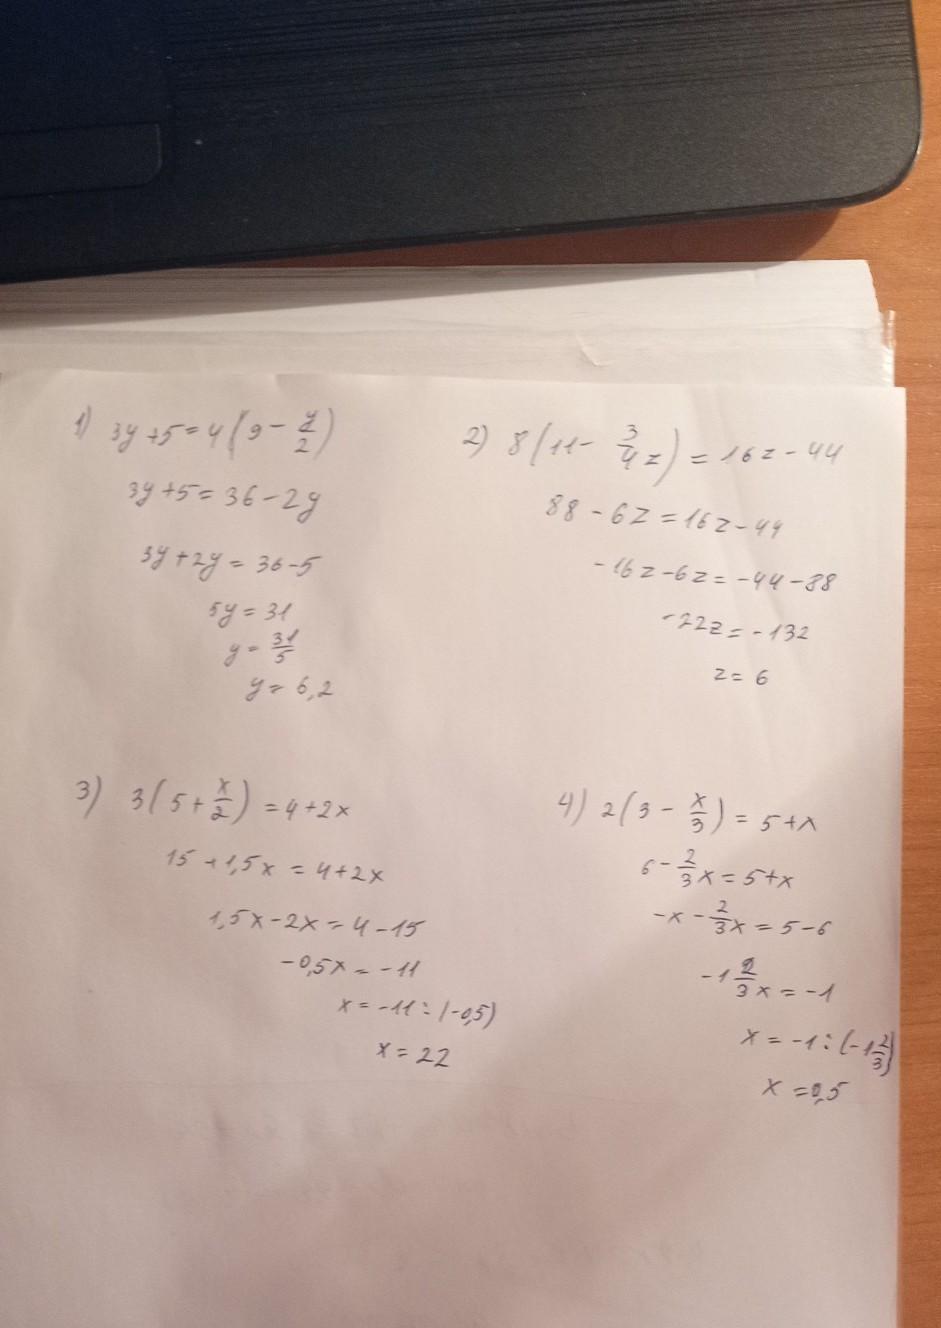 1) 3y+5=4(9-y/2)
3y+5=36-2y
3y+2y=36-5
5y=31
y=31/5
y=6,2
2) 8(11-3/4z)=16z-44
88-6z=16z-44
-16z-6z=-44-88
-22z=-132
z=6
3) 3(5+x/2)=4+2x
15+1,5x=4+2x
1,5x-2x=4-15
-0,5x=-11
x=-11:(-0,5)
x=22
4) 2(3-x/3)=5+x
6-2/3x=5+x
-x-2/3x=5-6
-1 2/3x=-1
x=-1:(-1 2/3)
x=0,5